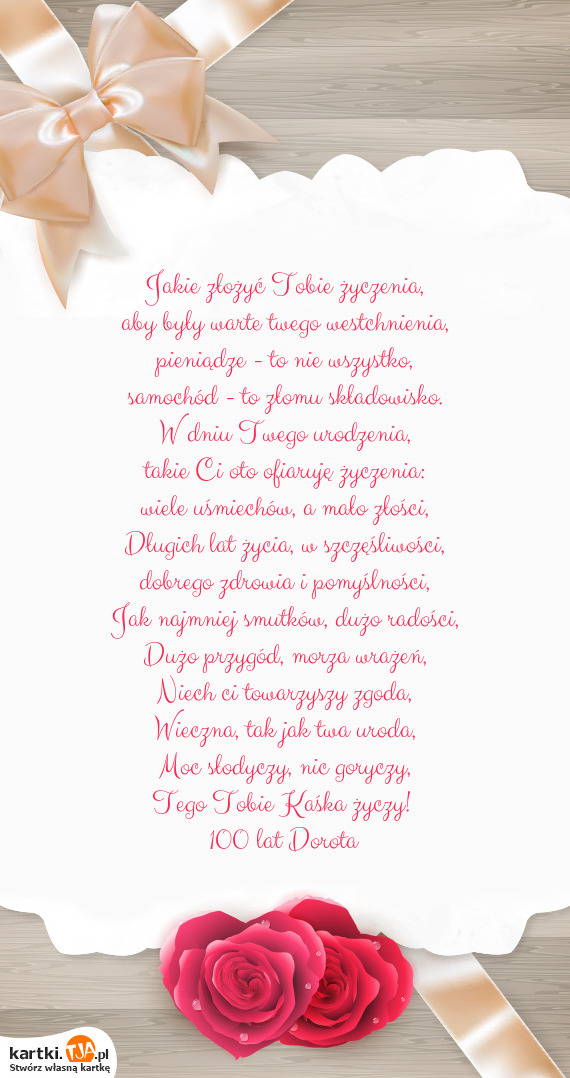 Jakie złożyć Tobie życzenia,
aby były warte twego westchnienia,
pieniądze - to nie wszystko,
samochód - to złomu składowisko.
W dniu Twego urodzenia,
takie Ci oto ofiaruję życzenia:
wiele uśmiechów, a mało złości,
Długich lat życia, w szczęśliwości,
dobrego zdrowia i pomyślności,
Jak najmniej smutków, dużo radości,
Dużo przygód, morza wrażeń,
Niech ci towarzyszy zgoda,
Wieczna, tak jak twa uroda,
Moc słodyczy, nic goryczy,
Tego Tobie Kaśka życzy!
100 lat Dorota
kartki.TJA.pl
Stwórz własną kartkę